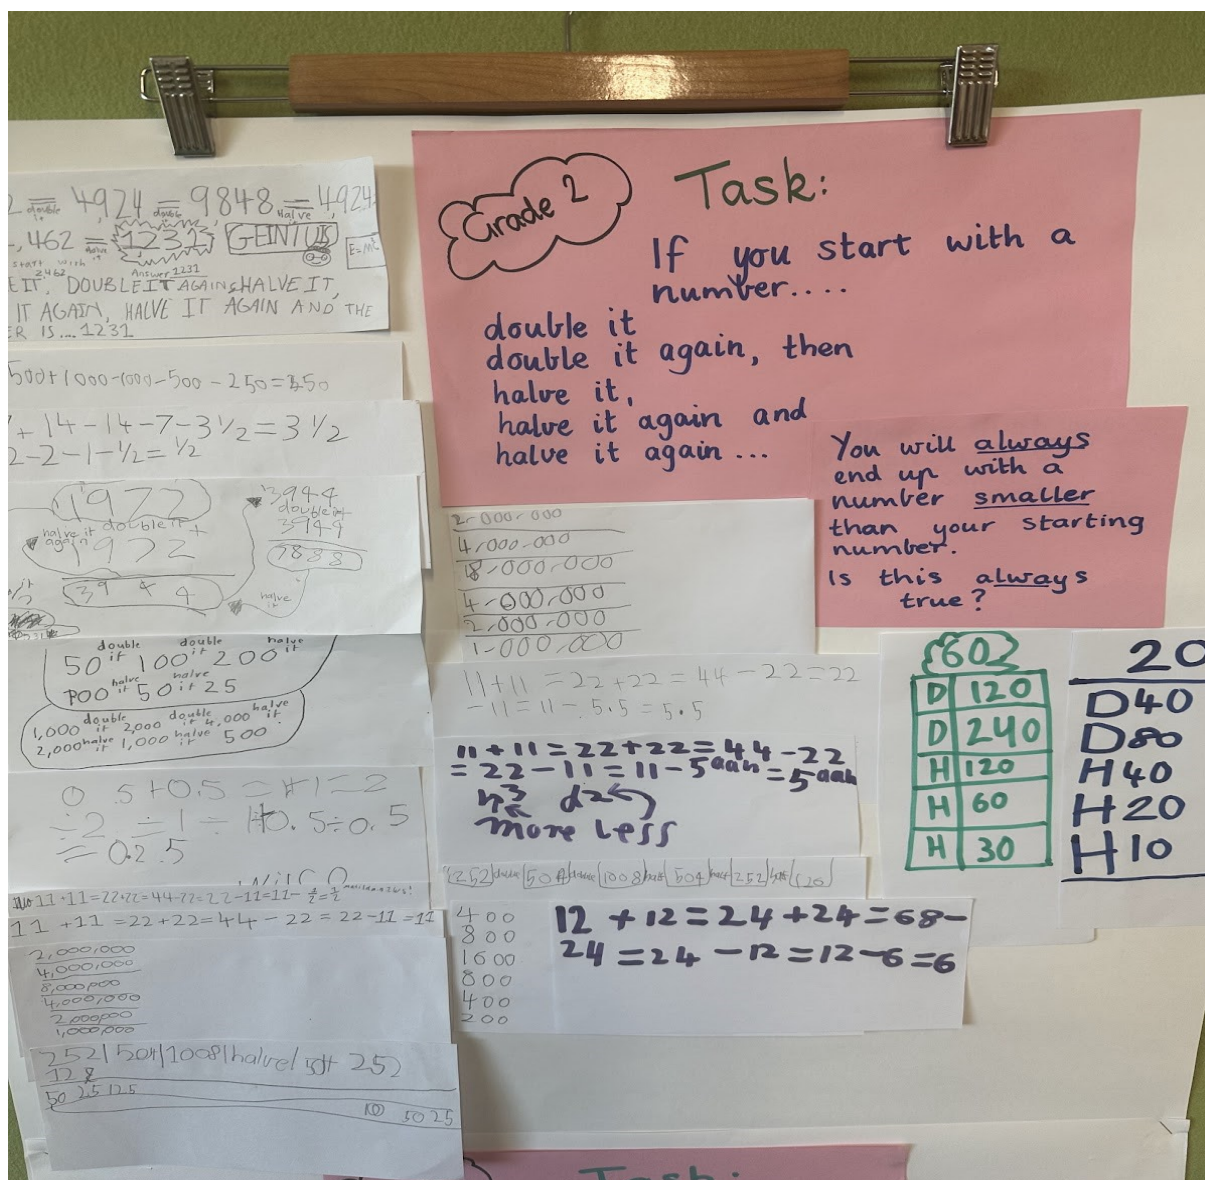 Grade 2
Task:
If you start with a
number....
double it
double it again, then
halve it,
halve it again and
halve it again ...
You will always
end up with a
number smaller
than your starting
number.
Is this always
true?
= 4,924 = 9848 = 4,924
double it double it halve it
,462 = 1231 GEINIUS
halve it
start with
2462
Answer 1231
E IT, DOUBLE IT AGAIN, HALVE IT,
IT AGAIN, HALVE IT AGAIN AND THE
ER IS.... 1231
500+1000-1000-500-250=
+ 14-14-7-3 1/2 = 3 1/2
2-2-1-1/2=1/2
1972
halve it again
double it +
1972
3944
3944
double it +
3944
7888
halve it
double it double it halve it
50 100 200
100 halve it 50 halve it 25
1,000 double it 2,000 double it 4,000 halve it
2,000 halve it 1,000 halve it 500
0.5+0.5=1+1=2
÷2=1÷ 0.5÷0.5
=0.2.5
11+11=22+22=44-22=22-11=11-
11+11=22+22=44-22=22-11=11
2,000,000
4,000,000
8,000,000
4,000,000
2,000,000
1,000,000
252/504/1008/halve/ 252
50 25 125
100 50 25
2-000-000
4-000-000
8-000,000
4-000,000
2,000,000
1-000,000
11+11=22+22=44-22=22
-11=11-5.5=5.5
11+11=22+22=44-22
=22-11=11-5 aah =5 aah
h3 d2
more Less
252 double 504 double 1008 half 504 half 252 half 126
400
800
1600
800
400
200
12+12=24+24=68-
24=24-12=12-6=6
60
D 120
D 240
H 120
H 60
H 30
20
D 40
D 80
H 40
H 20
H 10
Task: